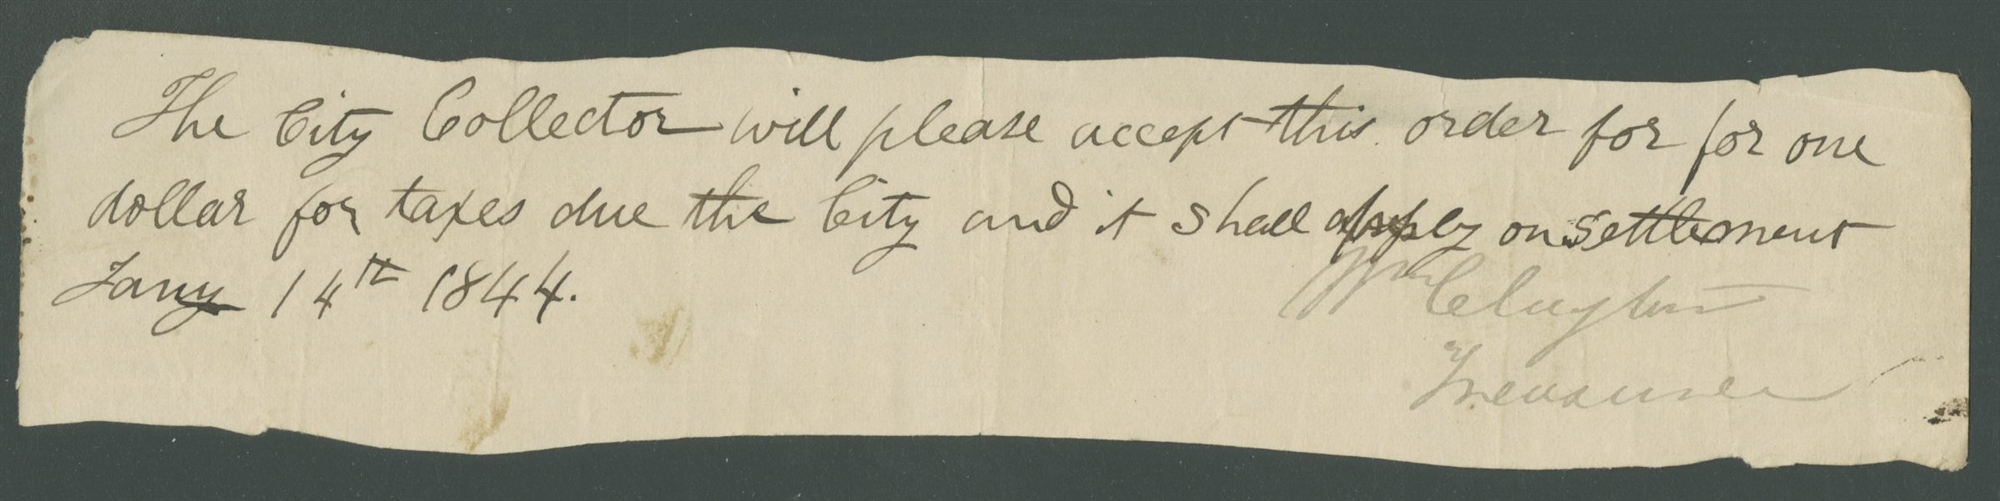 The City Collector will please accept this order for for one
dollar for taxes due the City and it shall apply on settlement
Jany 14th 1844.
Wm Clayton
Treasurer